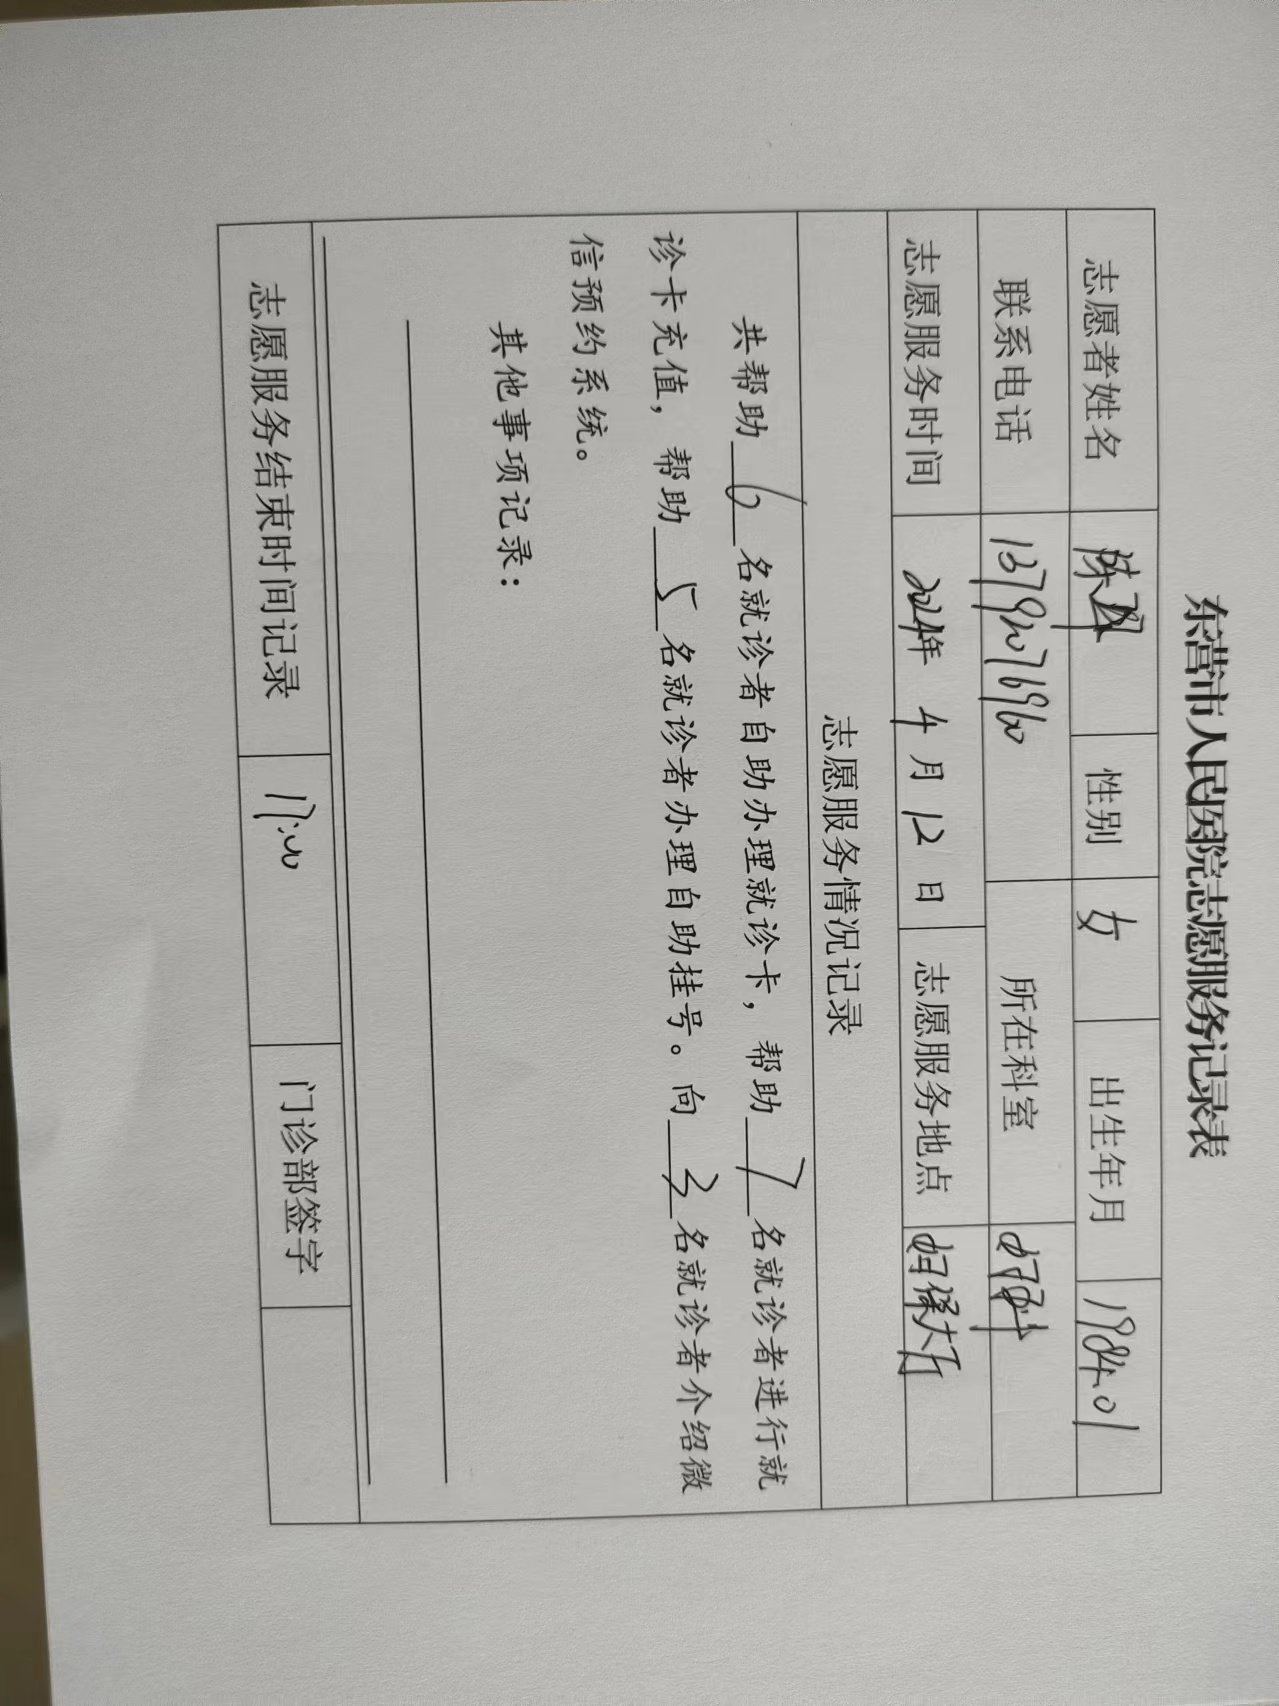 东营市人民医院志愿服务记录表
志愿者姓名 陈 性别 女 出生年月 1984.01
联系电话 13792076960 所在科室 妇科
志愿服务时间 2024年 4 月 12 日 志愿服务地点 妇保大厅
志愿服务情况记录
共帮助 6 名就诊者自助办理就诊卡，帮助 7 名就诊者进行就
诊卡充值，帮助 5 名就诊者办理自助挂号。向 3 名就诊者介绍微
信预约系统。
其他事项记录：
志愿服务结束时间记录 17:00 门诊部签字